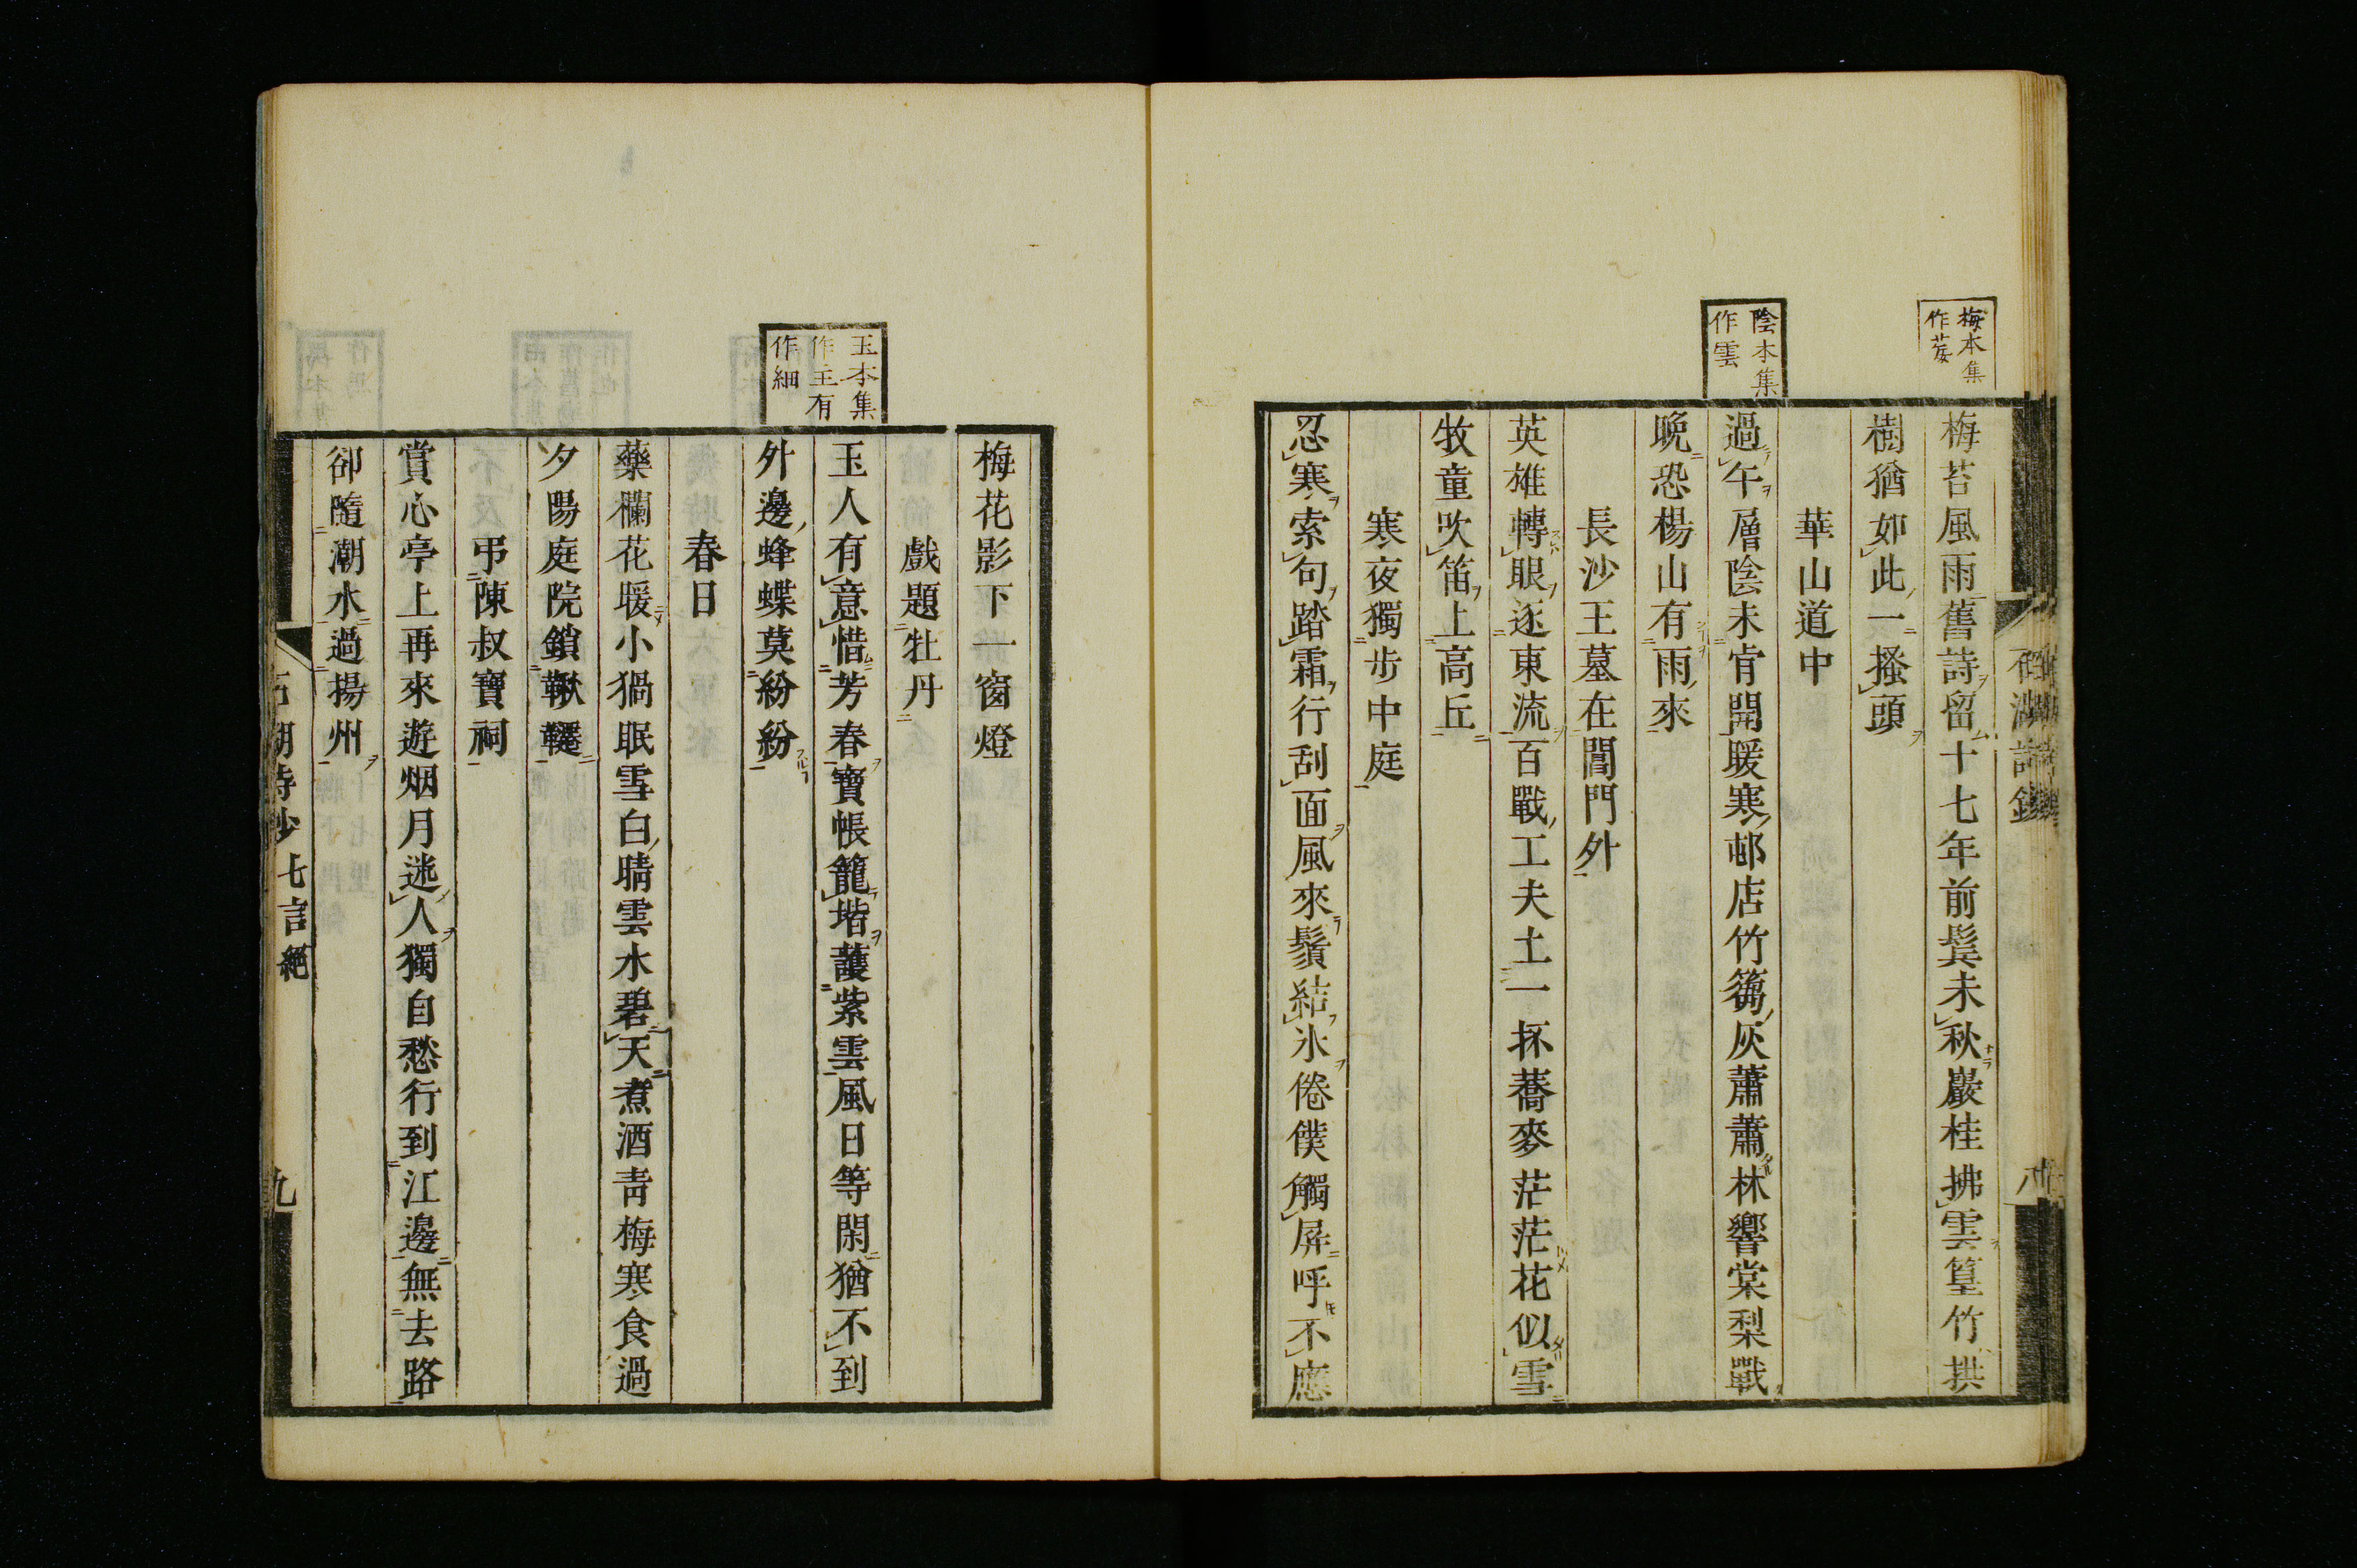 梅本集
作莓
梅苔風雨舊詩留十七年前鬂未秋巖桂拂雲篁竹拱
樹猶如此一搔頭
華山道中
陰本集
作雲
過午層陰未肯開暖寒邨店竹蒭灰蕭蕭林響棠梨戰
晩恐楊山有雨來
長沙王墓在閶門外
英雄轉眼逐東流百戰工夫土一抔蕎麥茫茫花似雪
牧童吹笛上高丘
寒夜獨步中庭
忍寒索句踏霜行刮面風來鬚結氷倦僕觸屏呼不應
梅花影下一窗燈
戲題牡丹
玉本集
作主有
作細
玉人有意惜芳春寶帳籠堦護紫雲風日等閑猶不到
外邊蜂蝶莫紛紛
春日
藥欄花暖小猧眠雪白晴雲水碧天煮酒青梅寒食過
夕陽庭院鎖鞦韆
弔陳叔寶祠
賞心亭上再來遊烟月迷人獨自愁行到江邊無去路
卻隨潮水過揚州
石湖詩鈔 七言絕 九